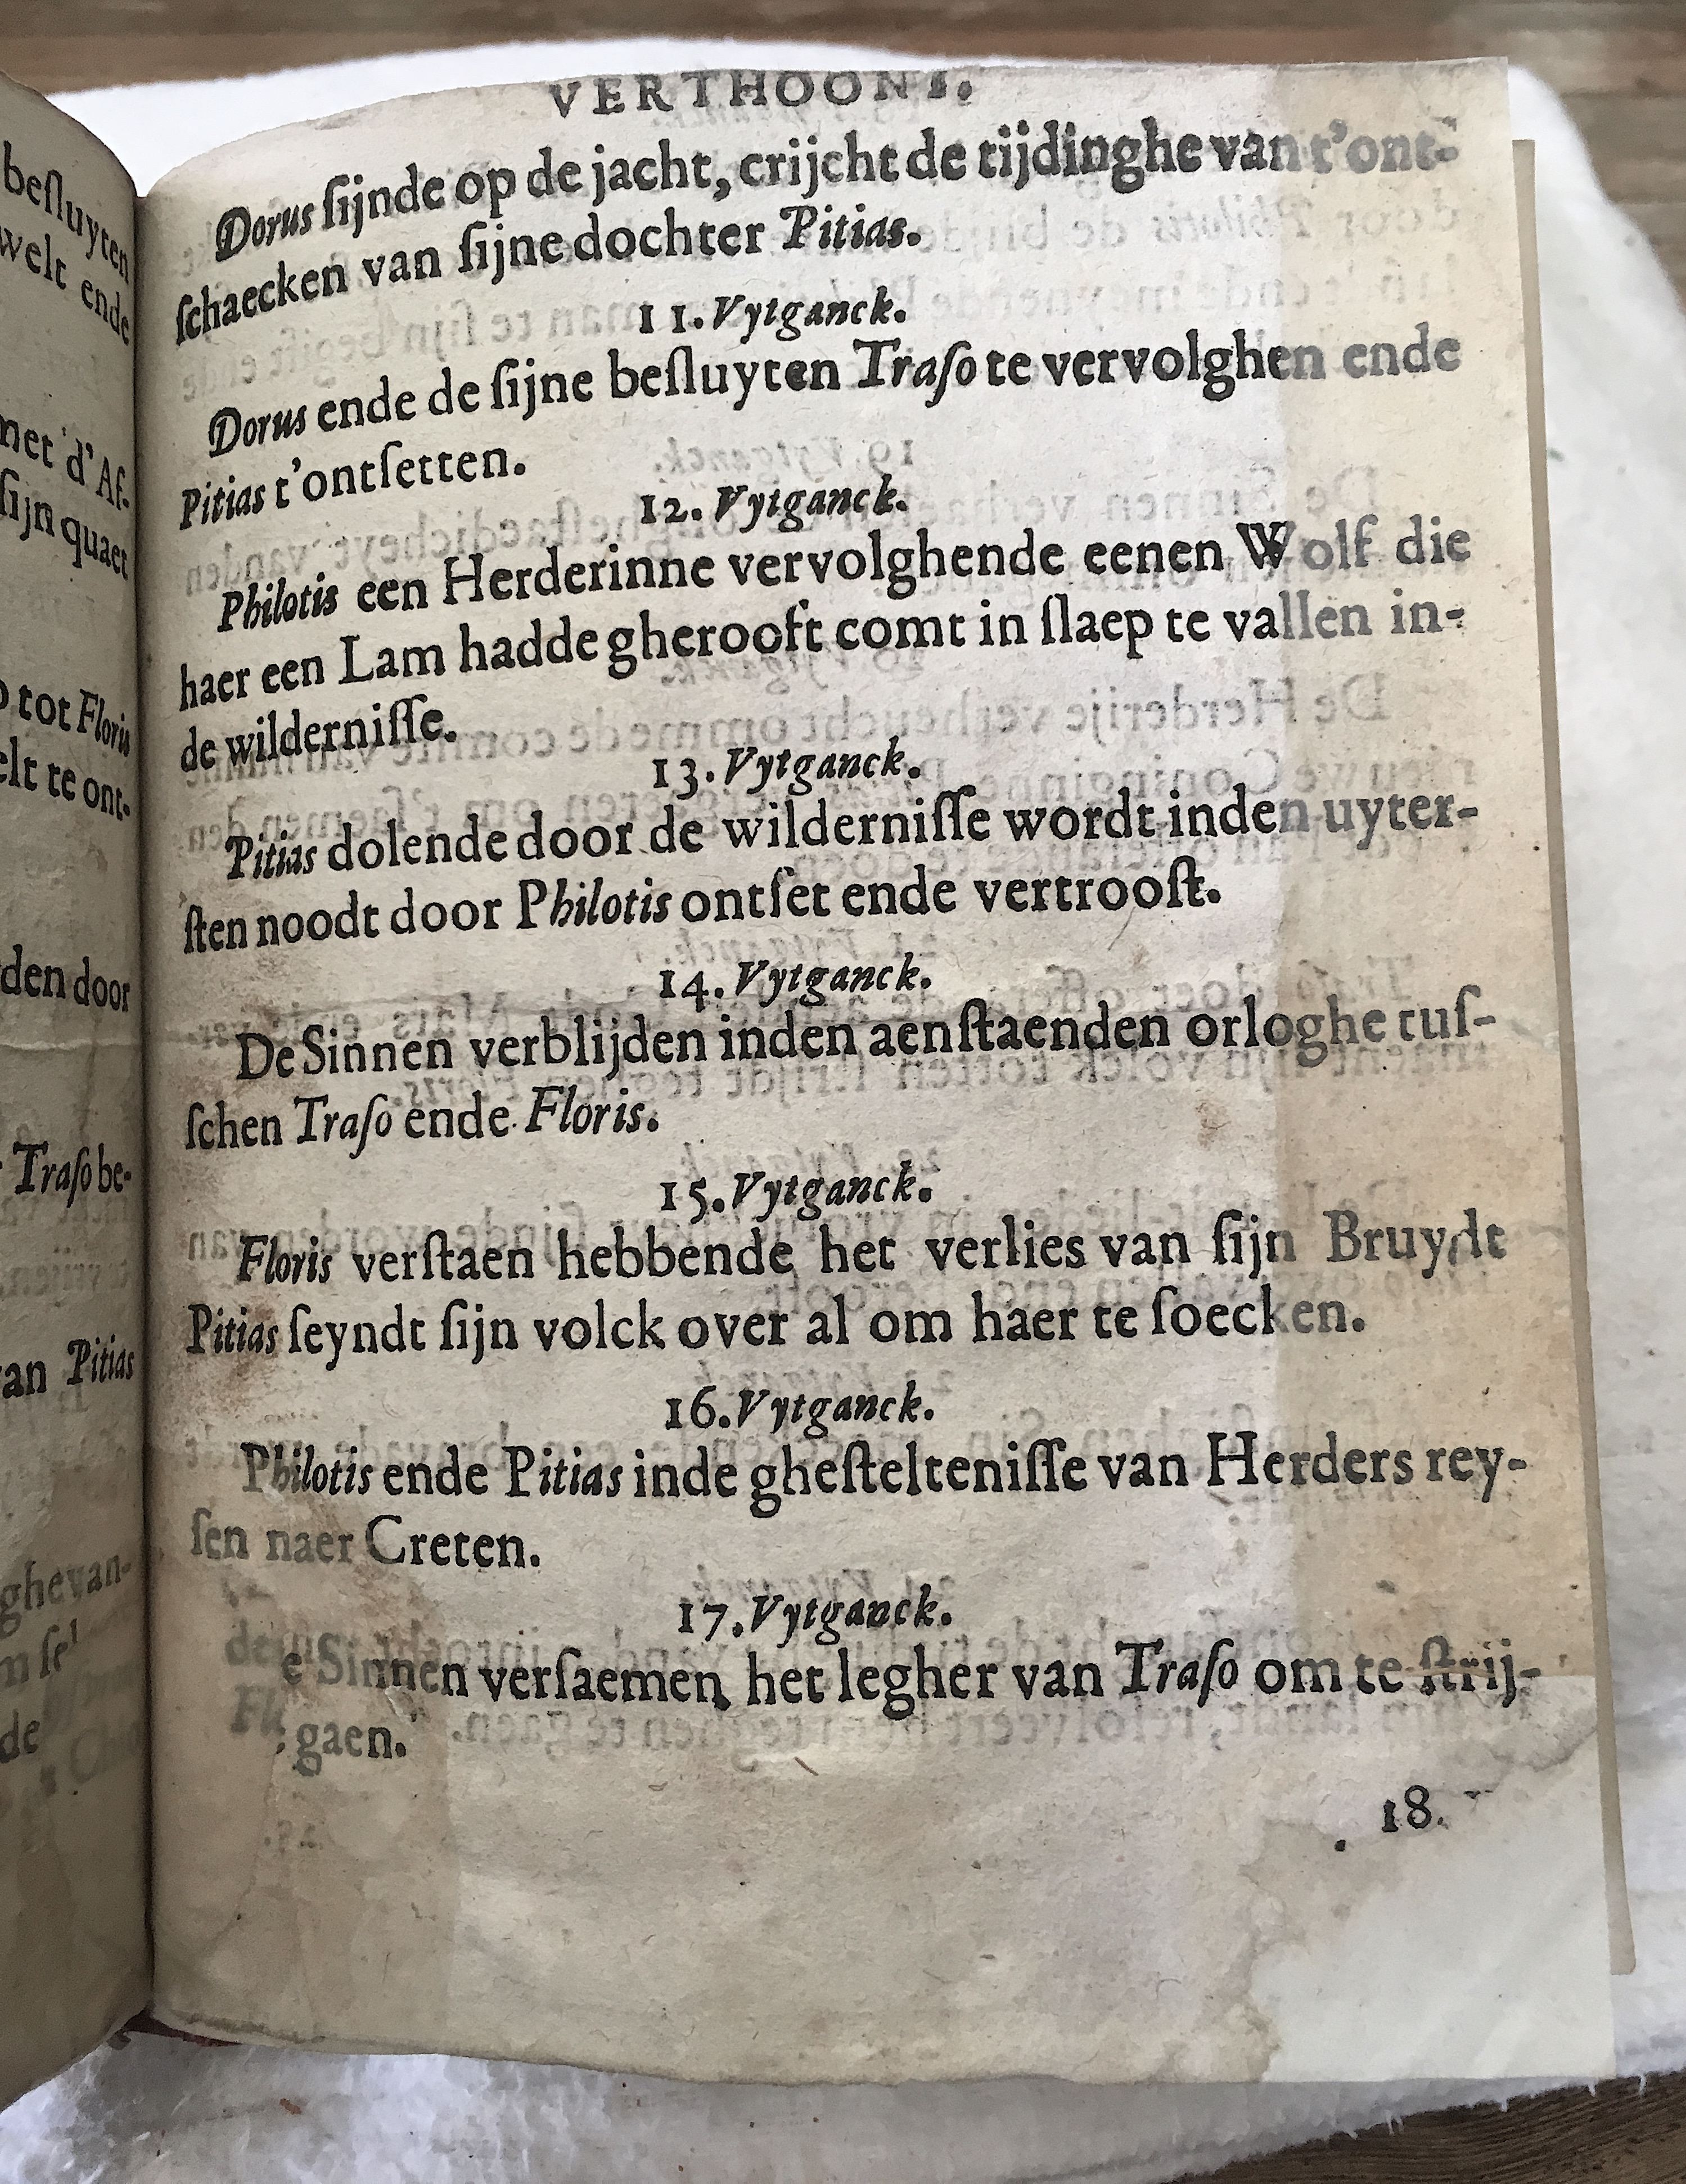 besluyten
welt ende
met d'Af-
sijn quaet
tot Floris
te ont-
den door
Traso be-
van Pitias
ghevan-
de
VERTHOONT.
Dorus sijnde op de jacht, crijcht de tijdinghe van t'ont-
schaecken van sijne dochter Pitias.
11. Vytganck.
Dorus ende de sijne besluyten Traso te vervolghen ende
Pitias t'ontsetten.
12. Vytganck.
Philotis een Herderinne vervolghende eenen Wolf die
haer een Lam hadde gherooft comt in slaep te vallen in-
de wildernisse.
13. Vytganck.
Pitias dolende door de wildernisse wordt inden uyter-
sten noodt door Philotis ontset ende vertroost.
14. Vytganck.
De Sinnen verblijden inden aenstaenden orloghe tus-
schen Traso ende Floris.
15. Vytganck.
Floris verstaen hebbende het verlies van sijn Bruydt
Pitias seyndt sijn volck over al om haer te soecken.
16. Vytganck.
Philotis ende Pitias inde ghesteltenisse van Herders rey-
sen naer Creten.
17. Vytganck.
e Sinnen versaemen het legher van Traso om te strij-
gaen.
18.